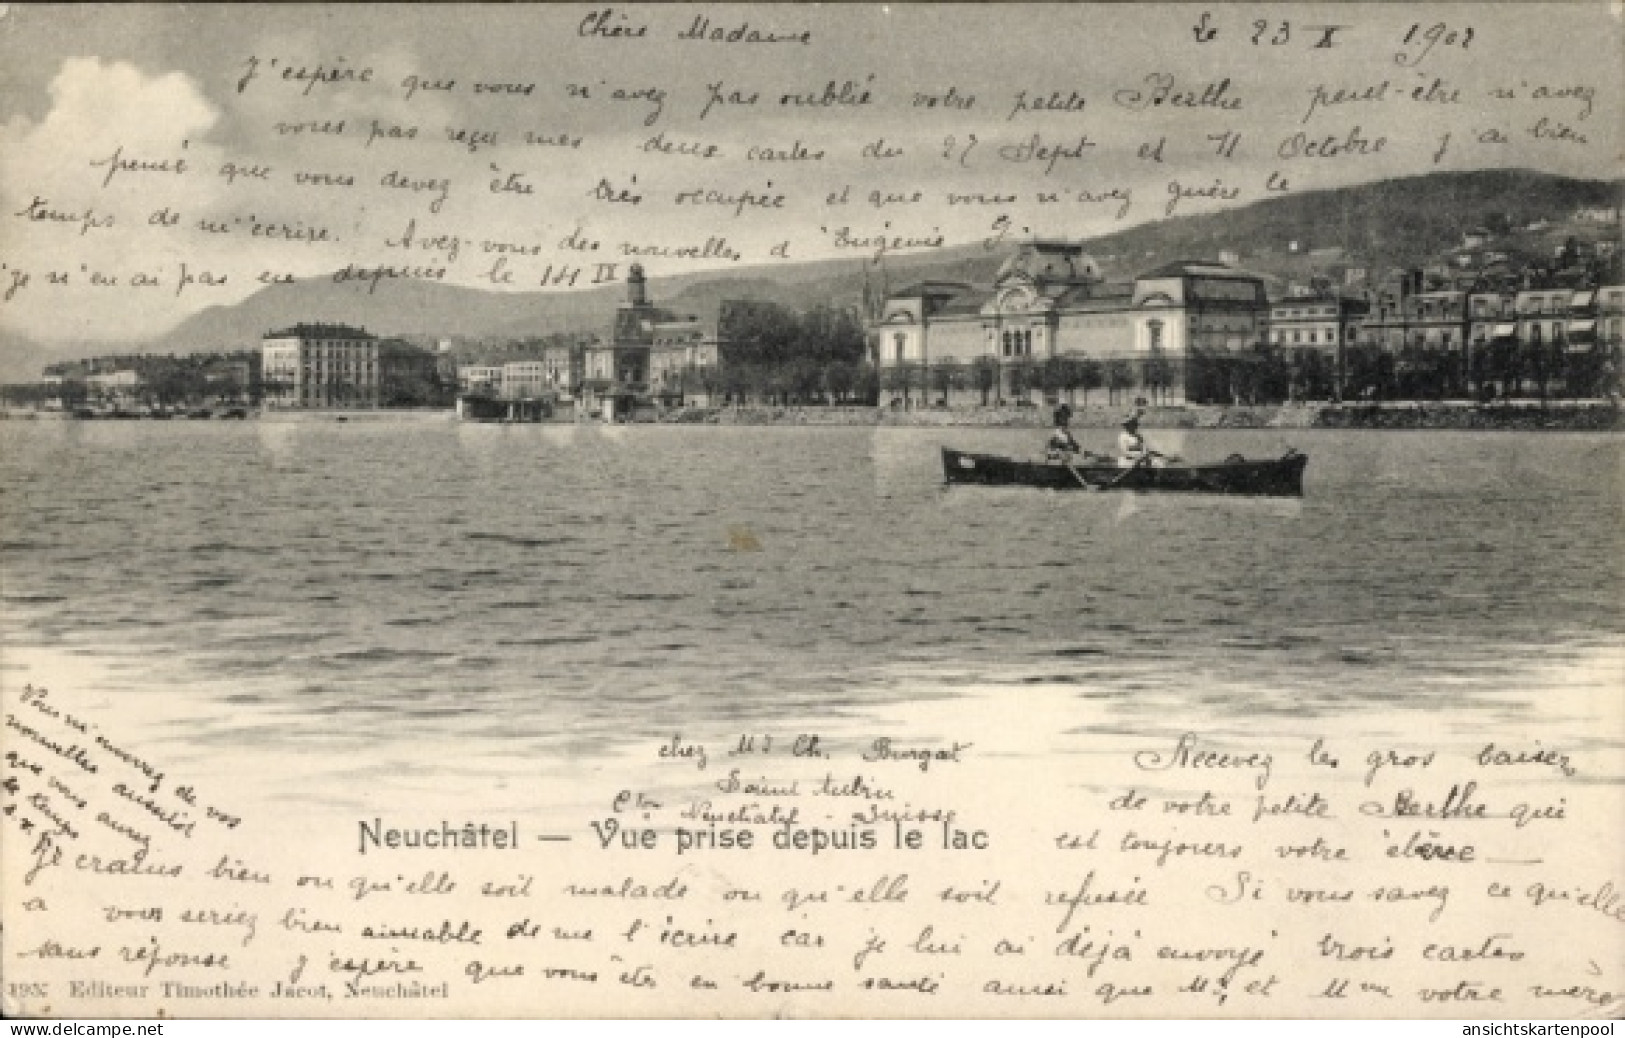 Chère Madame Le 23 X 1902
J'espère que vous n'avez pas oublié votre petite Berthe peut-être n'avez
vous pas reçu mes deux cartes du 27 Sept et 11 Octobre j'ai bien
pensé que vous devez être très occupée et que vous n'avez guère le
temps de m'écrire. Avez-vous des nouvelles d'Eugénie G.
je n'en ai pas eu depuis le 14 IX
Vous m'enverrez de vos
nouvelles aussitôt
que vous aurez
le temps
s. v. p.
chez Md Ch. Burgat
Saint Aubin
Cton Neuchâtel - Suisse
Recevez les gros baisers
de votre petite Berthe qui
est toujours votre élève
Neuchâtel — Vue prise depuis le lac
je crains bien ou qu'elle soit malade ou qu'elle soit refusée Si vous savez ce qu'elle
a vous seriez bien aimable de me l'écrire car je lui ai déjà envoyé trois cartes
sans réponse j'espère que vous êtes en bonne santé ainsi que Mr et Mme votre mère
Editeur Timothée Jacot, Neuchâtel
delcampe.net
ansichtskartenpool